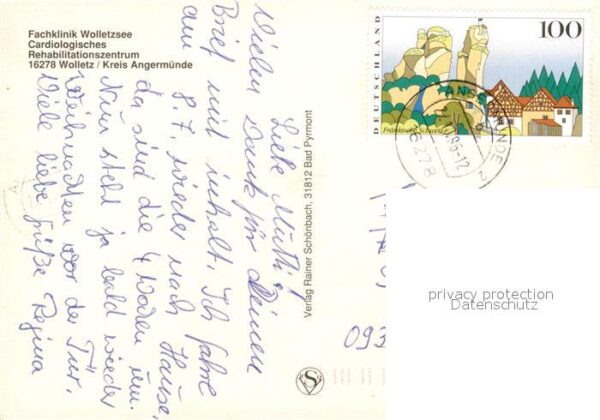 Fachklinik Wolletzsee
Cardiologisches
Rehabilitationszentrum
16278 Wolletz / Kreis Angermünde
Liebe Mutti!
Vielen Dank für Deinen
Brief mit Inhalt. Ich fahre
am 8.7. wieder nach Hause,
da sind die 4 Wochen um.
Nun steht ja bald wieder
Weihnachten vor der Tür.
Viele liebe Grüße Regina
Verlag Rainer Schönbach, 31812 Bad Pyrmont
S
DEUTSCHLAND
100
Fränkische Schweiz
16278
privacy protection
Datenschutz
093